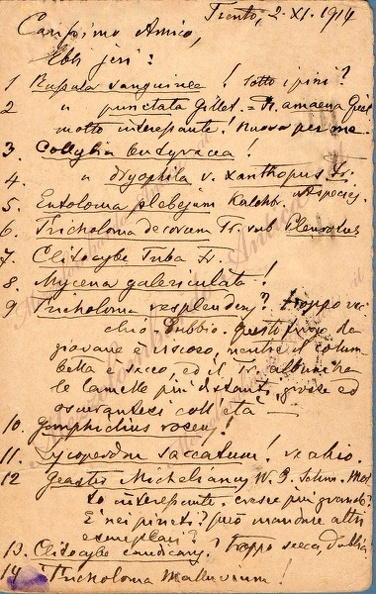 Trento, 2. XI. 1914
Carissimo Amico,
Ebbi jeri:
1 Russula sanguinea! Sotto i pini?
2 " punctata Gillet. = R. amaena Quél
molto interessante! Nuova per me.
3. Collybia butyracea!
4. " dryophila v. xanthopus Fr.
5. Entoloma plebejum Kalchbr.
6. Tricholoma decorum Fr. sub Pleurotus
7. Clitocybe Tuba Fr.
8. Mycena galericulata!
9 Tricholoma resplendens? troppo vec
chio - Dubbio. questo fungo da
giovane è viscoso, mentre il colum-
betta è secco, ed il Tr. album ha
le lamelle più distanti, grosse ed
oscurantesi coll'età —
10. Gomphidius roseus!
11. Lycoperdon saccatum! vecchio.
12 Geaster Michelianus W. G. Smith. Mol
to interessante. cresce più grande?
È nei pineti? può mandare altri
esemplari?
13. Clitocybe candicans? troppo secca, dubbia
14 Tricholoma Malluvium!